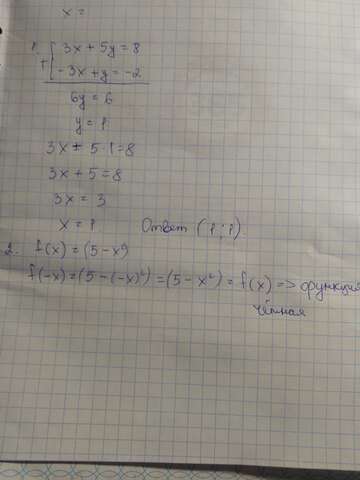 x =
1. + { 3x + 5y = 8
- 3x + y = -2
6y = 6
y = 1
3x + 5·1 = 8
3x + 5 = 8
3x = 3
x = 1 Ответ (1; 1)
2. f(x) = (5 - x²)
f(-x) = (5 - (-x)²) = (5 - x²) = f(x) => функция
чётная